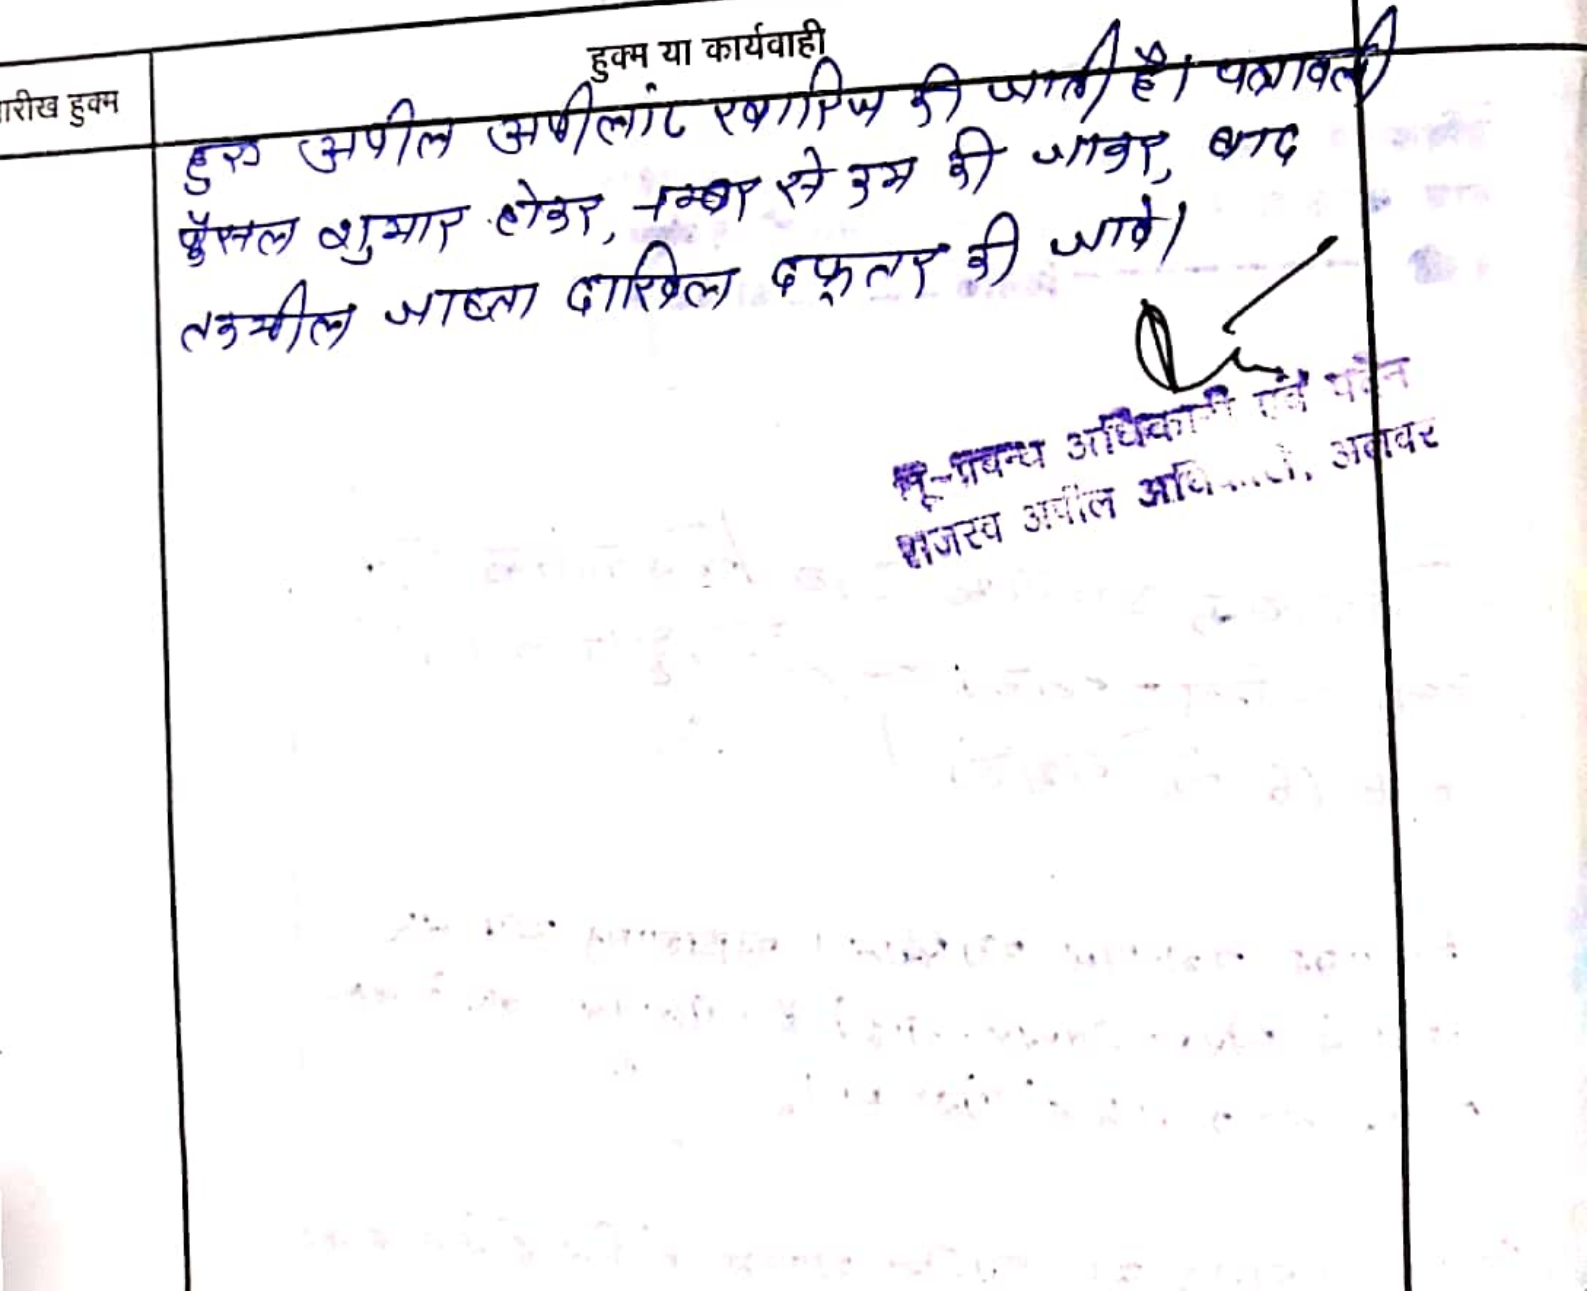 हुक्म या कार्यवाही
तारीख हुक्म
हुए अपील अपीलांट खारिज की जाती है। पत्रावली
फैसल शुमार होकर, नम्बर से कम की जाकर, बाद
तकमील जाब्ता दाखिल दफ्तर की जावे।
भू-प्रबन्ध अधिकारी एवं पदेन
राजस्व अपील अधिकारी, अलवर